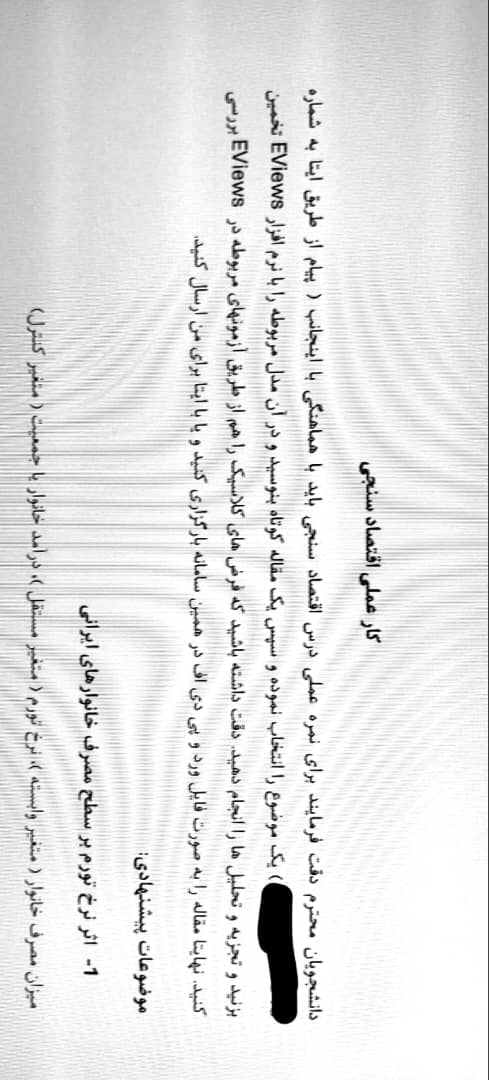 کار عملی اقتصاد سنجی
دانشجویان محترم دقت فرمایند برای نمره عملی درس اقتصاد سنجی باید با هماهنگی با اینجانب ( پیام از طریق ایتا به شماره
) یک موضوع را انتخاب نموده و سپس یک مقاله کوتاه بنوسید و در آن مدل مربوطه را با نرم افزار EViews تخمین
بزنید و تجزیه و تحلیل ها را انجام دهید. دقت داشته باشید که فرض های کلاسیک را هم از طریق آزمونهای مربوطه در EViews بررسی
کنید. نهایتا مقاله را به صورت فایل ورد و پی دی اف در همین سامانه بارگزاری کنید و یا با ایتا برای من ارسال کنید.
موضوعات پیشنهادی:
1- اثر نرخ تورم بر سطح مصرف خانوارهای ایرانی
میزان مصرف خانوار ( متغیر وابسته )، نرخ تورم ( متغیر مستقل )، درآمد خانوار یا جمعیت ( متغیر کنترل)